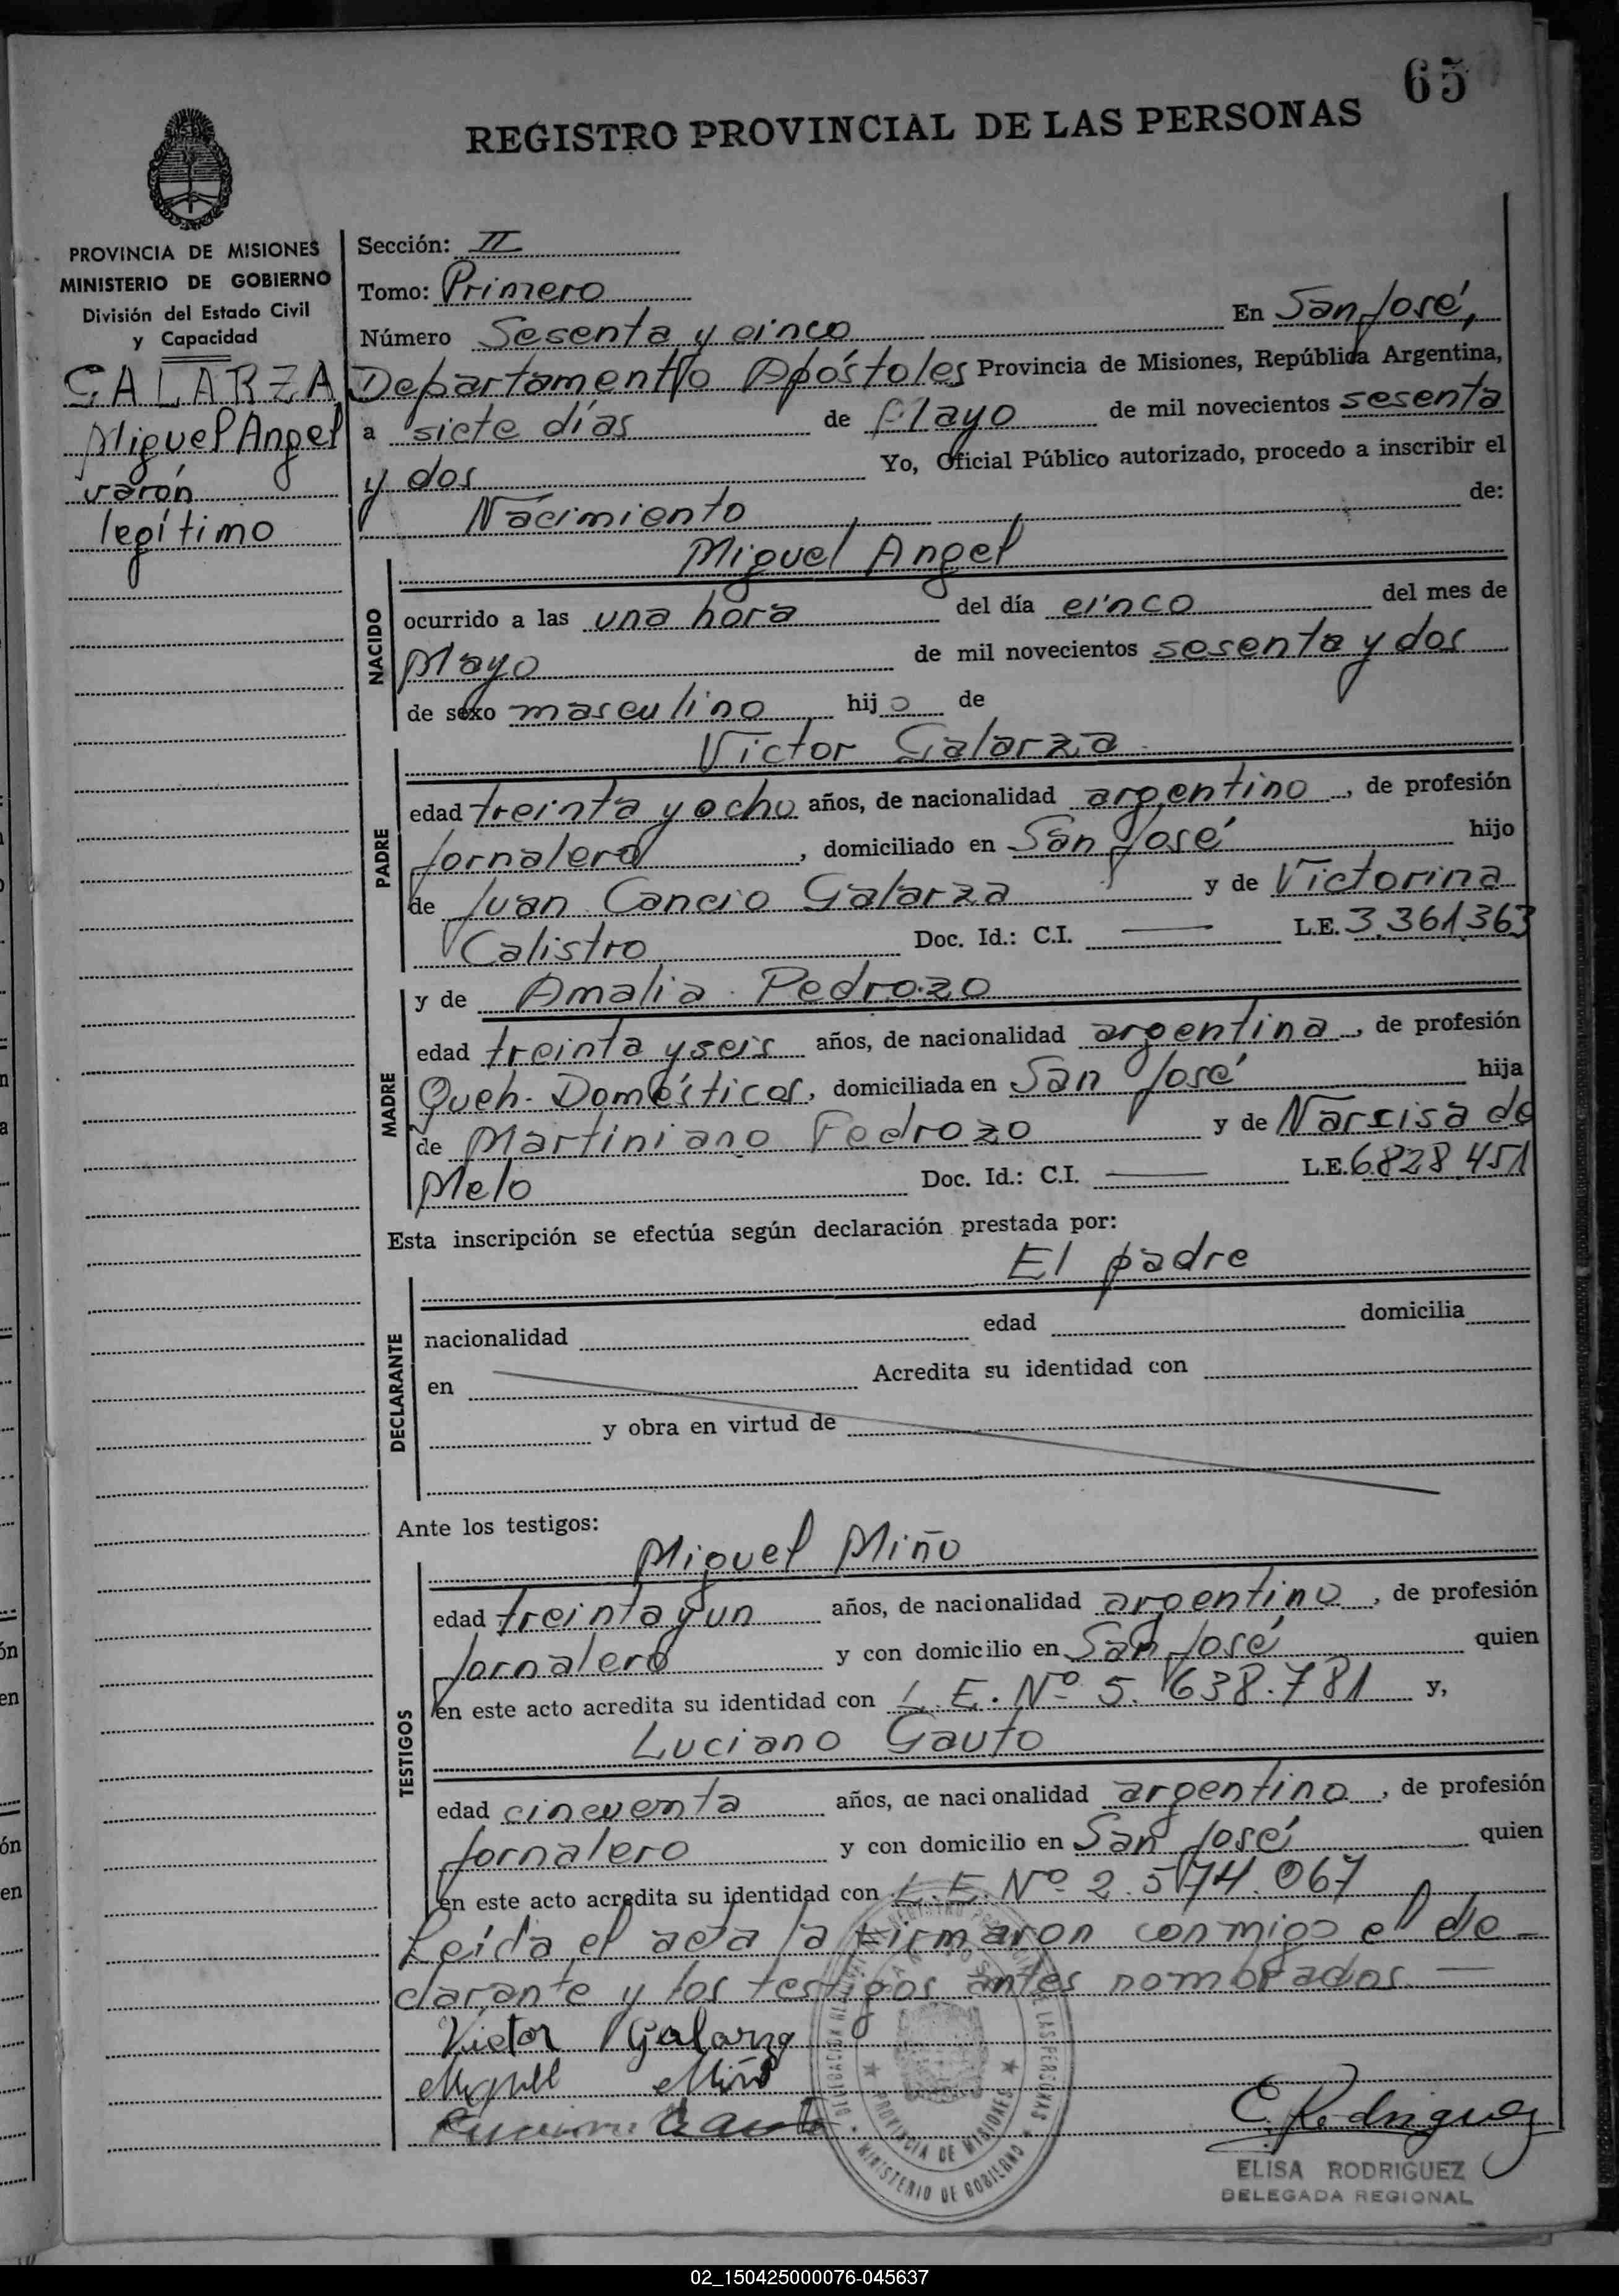 65
REGISTRO PROVINCIAL DE LAS PERSONAS
PROVINCIA DE MISIONES
MINISTERIO DE GOBIERNO
División del Estado Civil
y Capacidad
GALARZA
Miguel Angel
varón
legítimo
Sección: II
Tomo: Primero
Número Sesenta y cinco En San José,
Departamento Apóstoles Provincia de Misiones, República Argentina,
a siete días de Mayo de mil novecientos sesenta
y dos Yo, Oficial Público autorizado, procedo a inscribir el
Nacimiento de:
Miguel Angel
NACIDO
ocurrido a las una hora del día cinco del mes de
Mayo de mil novecientos sesenta y dos
de sexo masculino hijo de
Victor Galarza
PADRE
edad treinta y ocho años, de nacionalidad argentino, de profesión
Jornalero, domiciliado en San José hijo
de Juan Cancio Galarza y de Victorina
Calistro Doc. Id.: C.I. — L.E. 3.361.363
y de Amalia Pedrozo
MADRE
edad treinta y seis años, de nacionalidad argentina, de profesión
Queh. Domésticos, domiciliada en San José hija
de Martiniano Pedrozo y de Narcisa de
Melo Doc. Id.: C.I. — L.E. 6.828.451
Esta inscripción se efectúa según declaración prestada por:
El padre
DECLARANTE
nacionalidad edad domicilia
en Acredita su identidad con
y obra en virtud de
Ante los testigos:
Miguel Miño
TESTIGOS
edad treinta y un años, de nacionalidad argentino, de profesión
Jornalero y con domicilio en San José quien
en este acto acredita su identidad con L.E. Nº 5.638.781 y,
Luciano Gauto
edad cincuenta años, de nacionalidad argentino, de profesión
Jornalero y con domicilio en San José quien
en este acto acredita su identidad con L.E. Nº 2.574.067
Leída el acta la firmaron conmigo el de-
clarante y los testigos antes nombrados —
Victor Galarza
Miguel Miño
Luciano Gauto
PROVINCIA DE MISIONES
MINISTERIO DE GOBIERNO
E. Rodriguez
ELISA RODRIGUEZ
DELEGADA REGIONAL
02_150425000076-045637